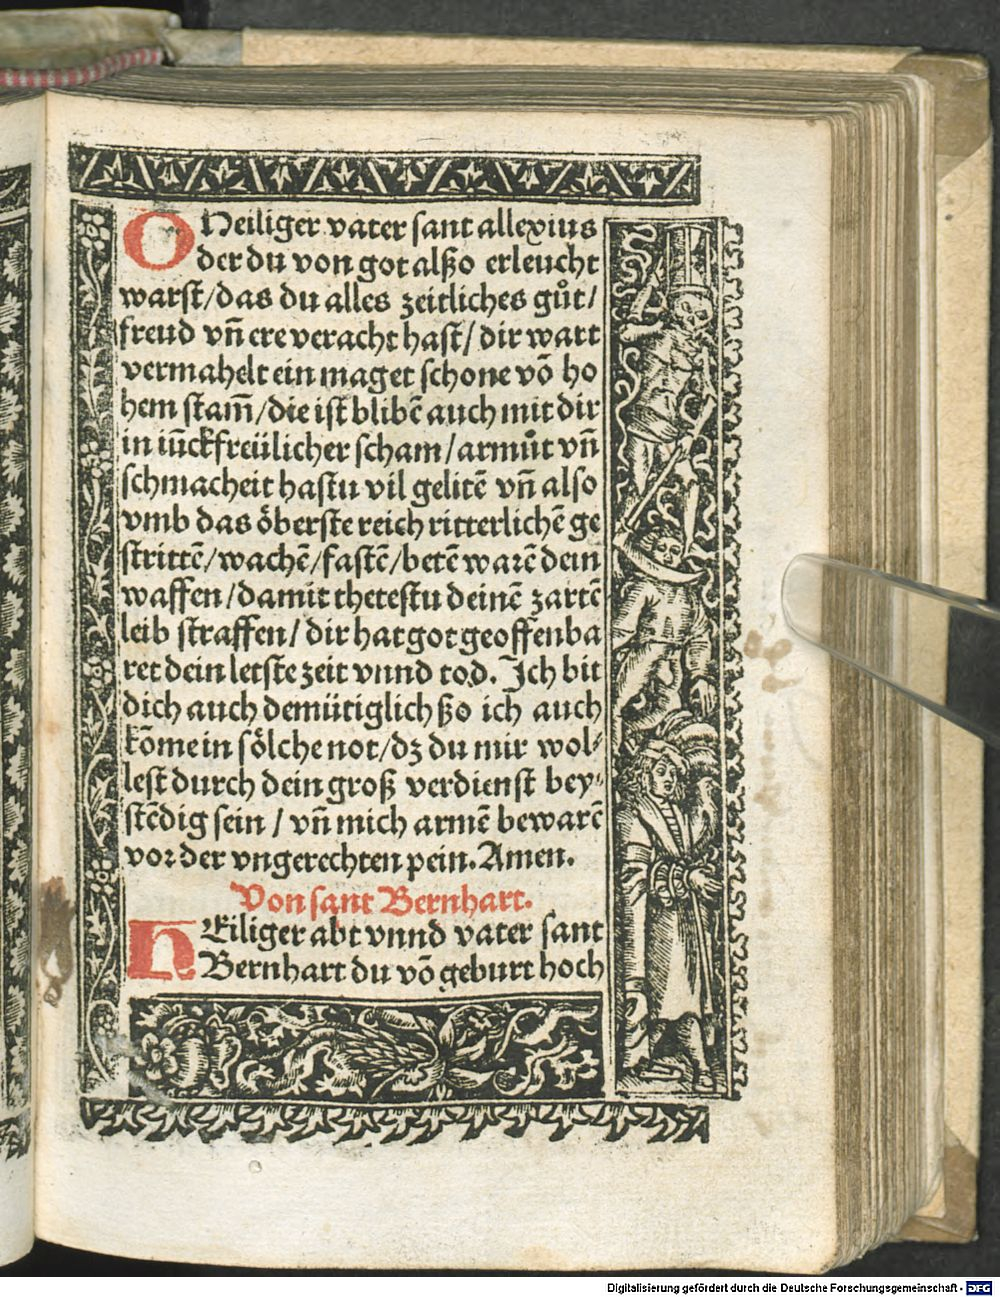 O Heiliger vater sant allexius
der du von got alßo erleucht
warst/das du alles zeitliches gůt/
freud vñ ere veracht hast/dir wart
vermahelt ein maget schone võ ho
hem stam̃/die ist blibẽ auch mit dir
in iũckfreülicher scham/armůt vñ
schmacheit hastu vil gelitẽ vñ also
vmb das öberste reich ritterlichẽ ge
strittẽ/wachẽ/fastẽ/betẽ warẽ dein
waffen/damit thetestu deinẽ zartẽ
leib straffen/dir hat got geoffenba
ret dein letste zeit vnnd tod. Ich bit
dich auch demütiglich ßo ich auch
kõme in sölche not/dz du mir wol⸗
lest durch dein groß verdienst bey⸗
stẽdig sein / vñ mich armẽ bewarẽ
vor der vngerechten pein. Amen.
Von sant Bernhart.
HEiliger abt vnnd vater sant
Bernhart du võ geburt hoch
Digitalisierung gefördert durch die Deutsche Forschungsgemeinschaft - DFG